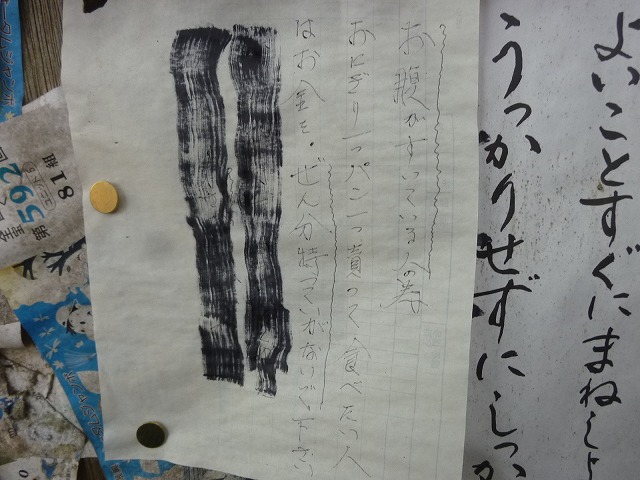 よいことすぐにまねしよ
うっかりせずにしっか
お腹がすいている人の為
おにぎり一つパン一つ貰って食べたい人
はお金を、ぜん分持っていがないで下さい
81組
592